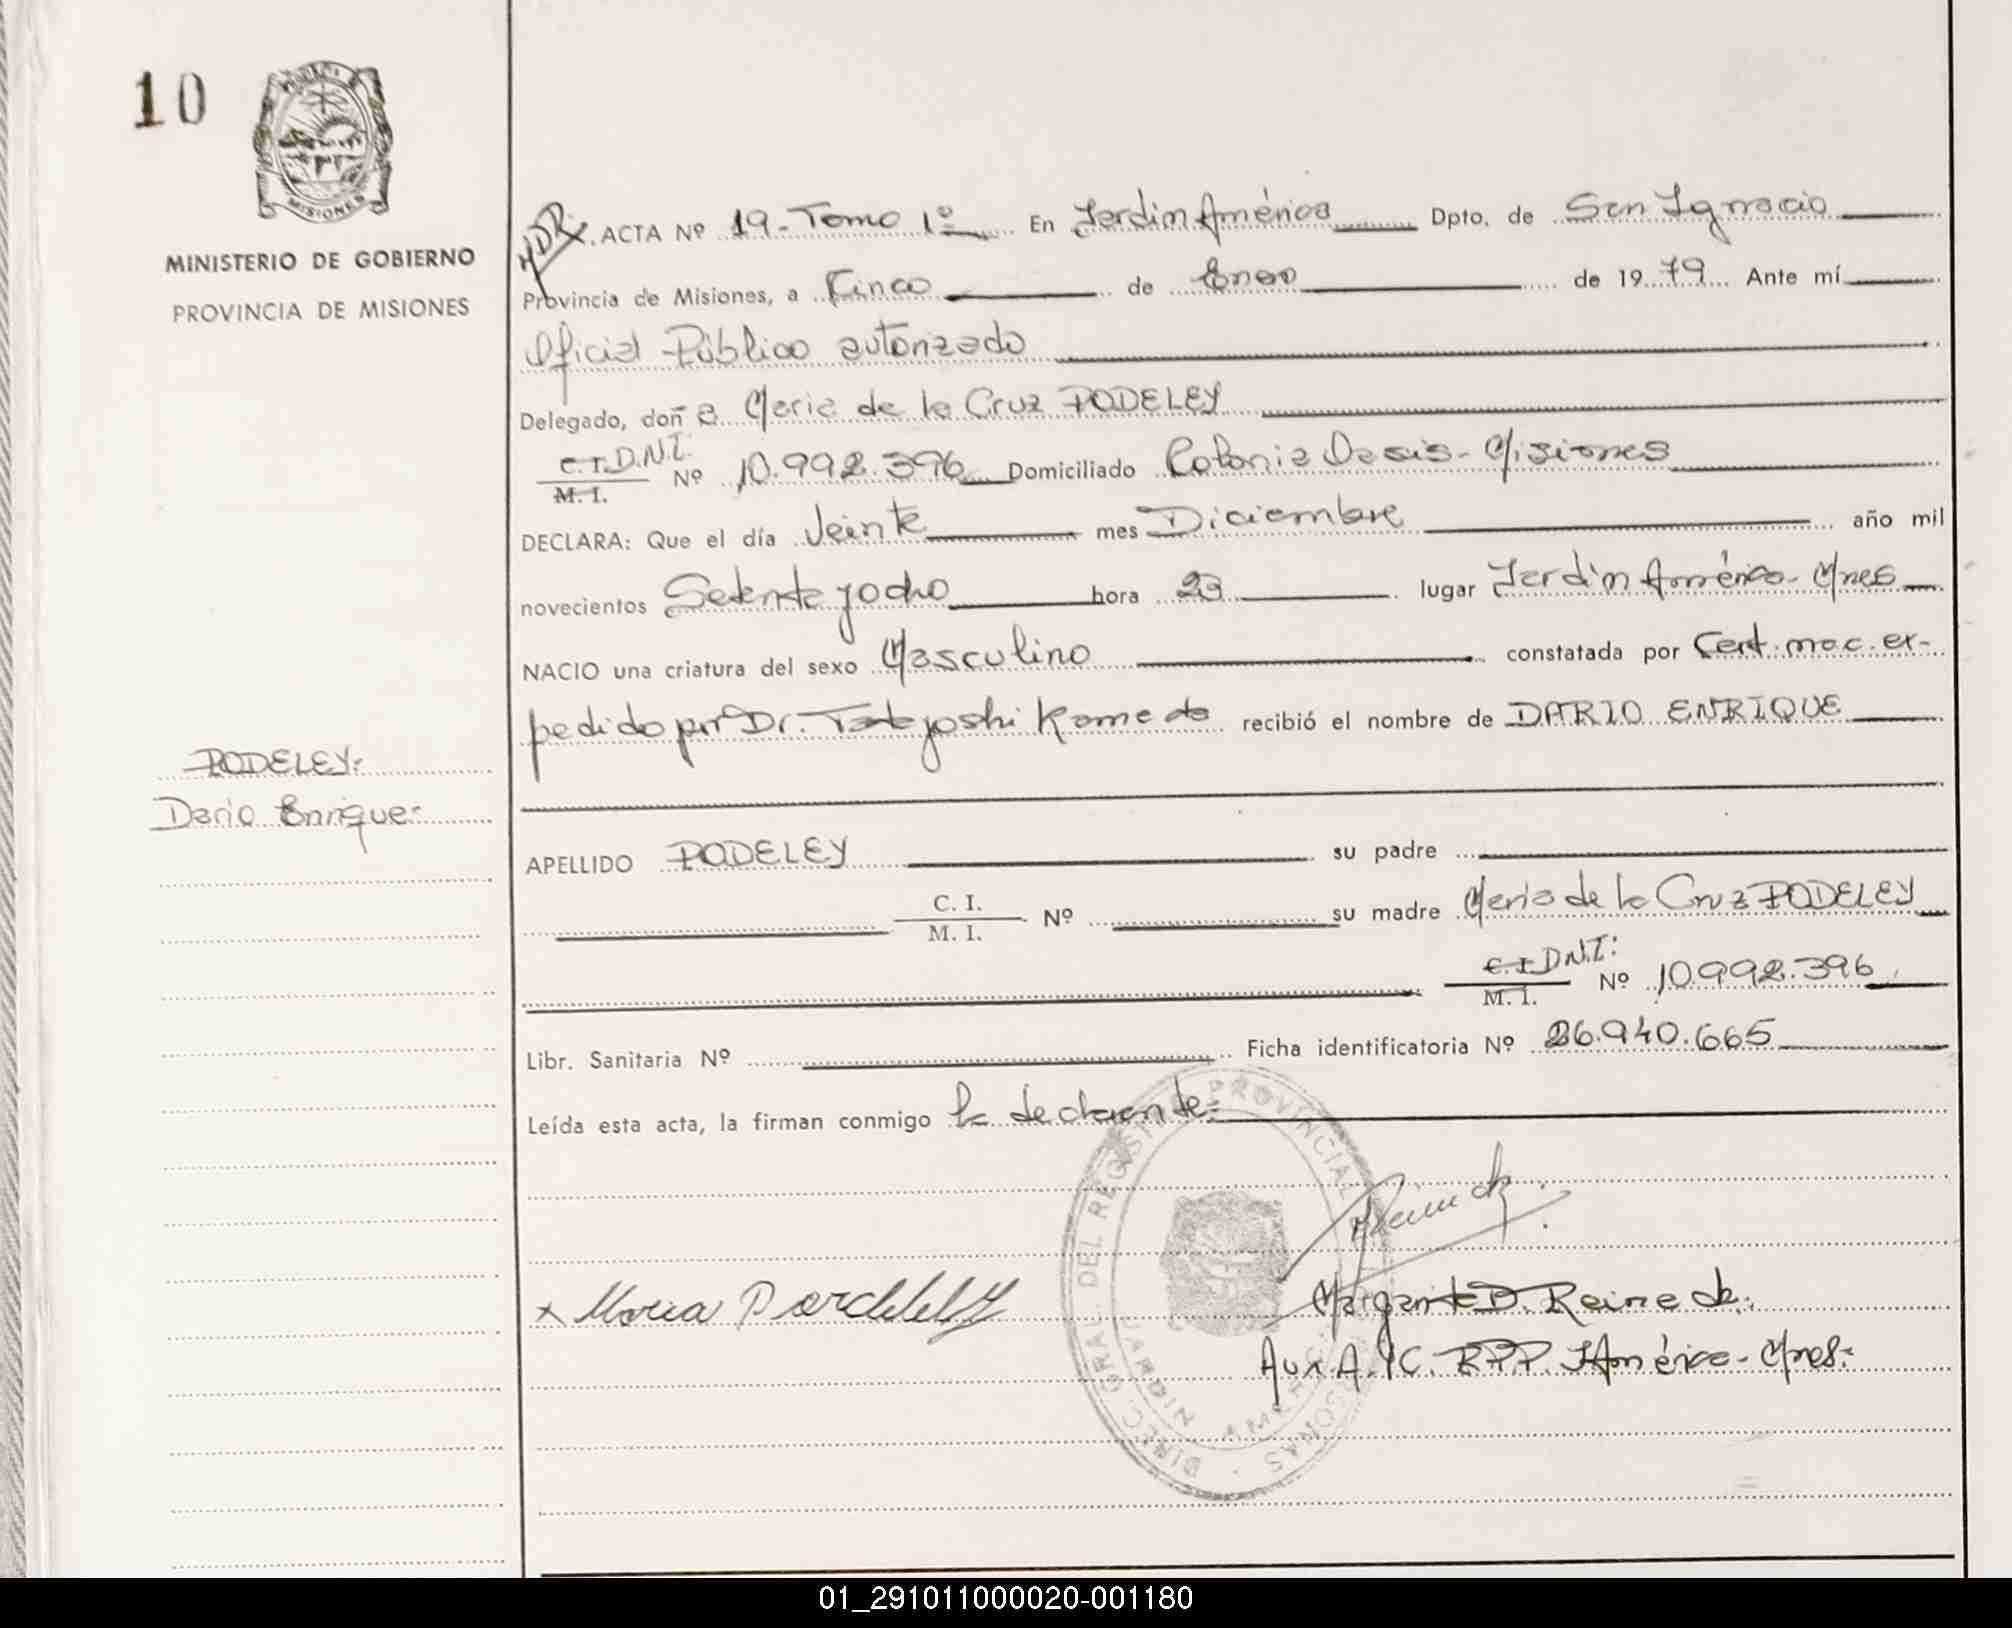 10
MISIONES
MINISTERIO DE GOBIERNO
PROVINCIA DE MISIONES
PODELEY:
Dario Enrique:
ACTA Nº 19-Tomo 1º En Jardin América Dpto. de San Ignacio
Provincia de Misiones, a Cinco de Enero de 1979 Ante mí
Oficial Público autorizado
Delegado, doña Maria de la Cruz PODELEY
C.I. D.N.I. M. I. Nº 10.992.396 Domiciliado Colonia Oasis-Misiones
DECLARA: Que el día Veinte mes Diciembre año mil
novecientos Setenta y ocho hora 23 lugar Jardin América-Mnes
NACIO una criatura del sexo Masculino constatada por Cert. ex-
pedido por Dr. Kameda recibió el nombre de DARIO ENRIQUE
APELLIDO PODELEY su padre
C. I. M. I. Nº su madre Maria de la Cruz PODELEY
C. I. D.N.I: M. I. Nº 10.992.396
Libr. Sanitaria Nº Ficha identificatoria Nº 26.940.665
Leída esta acta, la firman conmigo la declarante:
DIREC. GRAL. DEL PROVINCIAL
x Maria
Margarita D. Reineck.
Aux. A. R.P.P. J. América-Mnes:
01_291011000020-001180